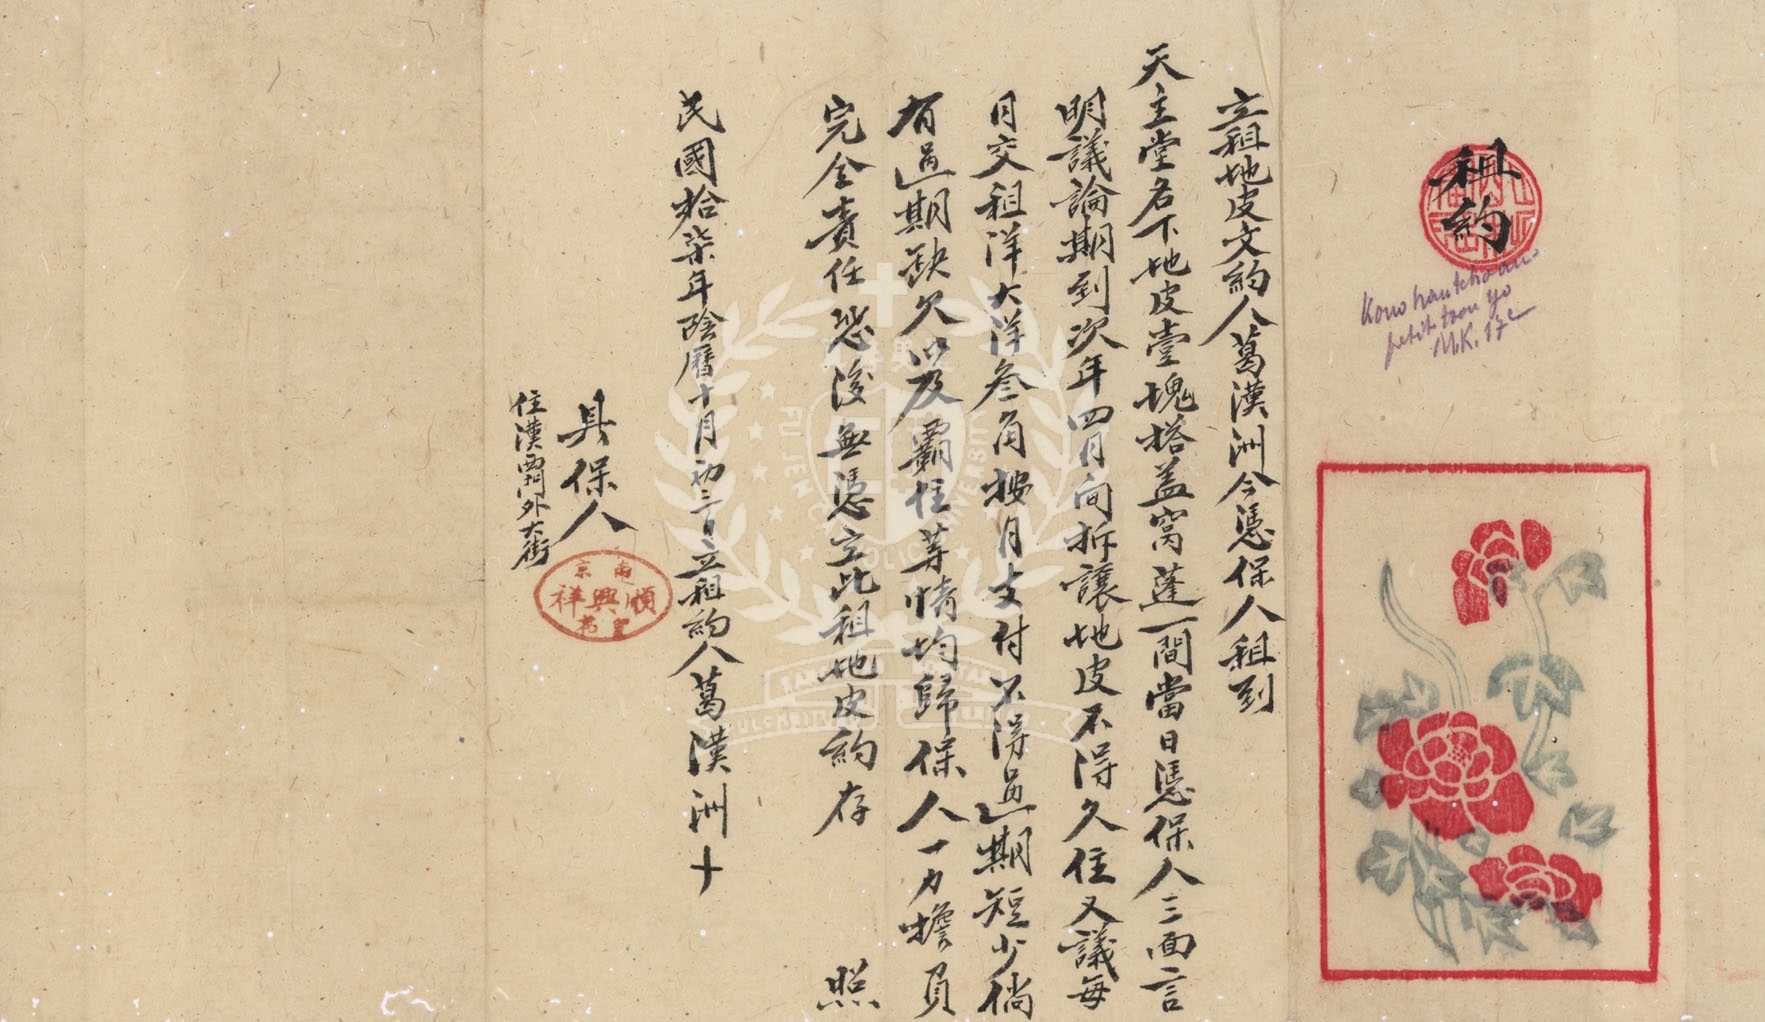 租約
立租地皮文約人葛漢洲今憑保人租到
天主堂名下地皮壹塊搭盖窩蓬一間當日憑保人三面言
明議論期到次年四月间拆讓地皮不得久住又議每
月交租洋大洋叁角按月支付不得过期短少倘
有过期缺欠以及霸住等情均歸保人一力擔負
完全責任恐後無憑立此租地皮約存 照
民國拾柒年陰曆十月初三日立租約人葛漢洲十
具保人
住漢西門外大街
南京
順興祥
petit
MK. 17